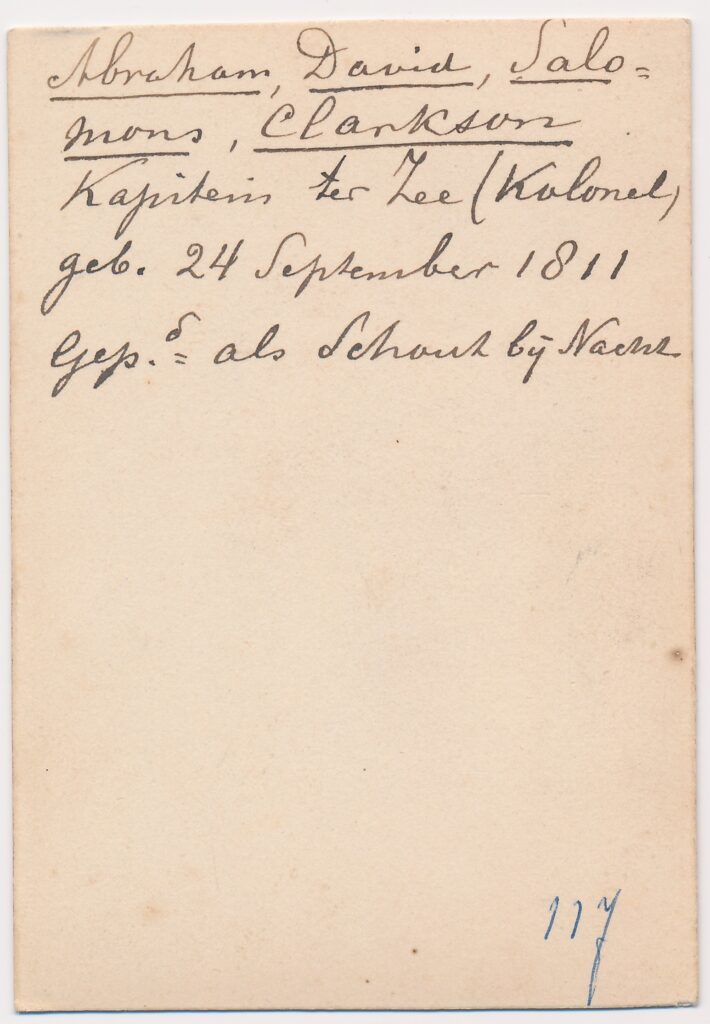 Abraham, David, Salo=
mons, Clarkson
Kapitein ter Zee (Kolonel)
geb. 24 September 1811
Gep.d= als Schout bij Nacht
117